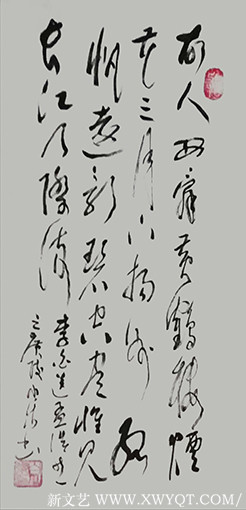 故人西辞黄鹤楼煙
花三月下揚州孤
帆遠影碧空尽惟見
長江天際流
李白送孟浩然
之廣陵
新文艺 WWW.XWYQT.COM